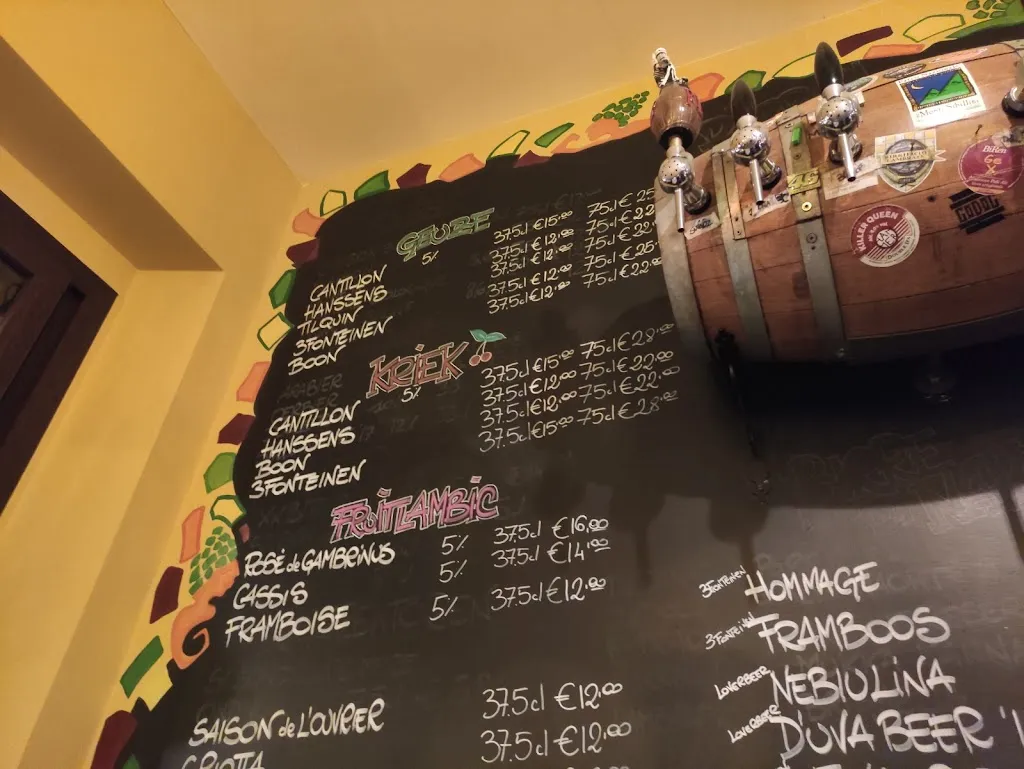 GEUZE
5%
CANTILLON 37.5cl €15.00 75cl € 25
HANSSENS 37.5cl €12.00 75cl € 22
TILQUIN 37.5cl €12.00 75cl € 22
3FONTEINEN 37.5cl €12.00 75cl € 25.00
BOON 37.5cl €12.00 75cl € 22.00
KRIEK
5%
CANTILLON 37.5cl €15.00 75cl € 28.00
HANSSENS 37.5cl €12.00 75cl € 22.00
BOON 37.5cl €12.00 75cl € 22.00
3FONTEINEN 37.5cl €15.00 75cl € 28.00
FRUITLAMBIC
ROSÈ de GAMBRINUS 5% 37.5cl €16.00
CASSIS 5% 37.5cl €14.00
FRAMBOISE 5% 37.5cl €12.00
SAISON de L'OUVRIER 37.5cl €12.00
GRIOTTA 37.5cl €12.00
3FONTEINEN HOMMAGE
3FONTEINEN FRAMBOOS
LOVERBEER NEBIULINA
LOVERBEER D'UVA BEER
KILLER QUEEN